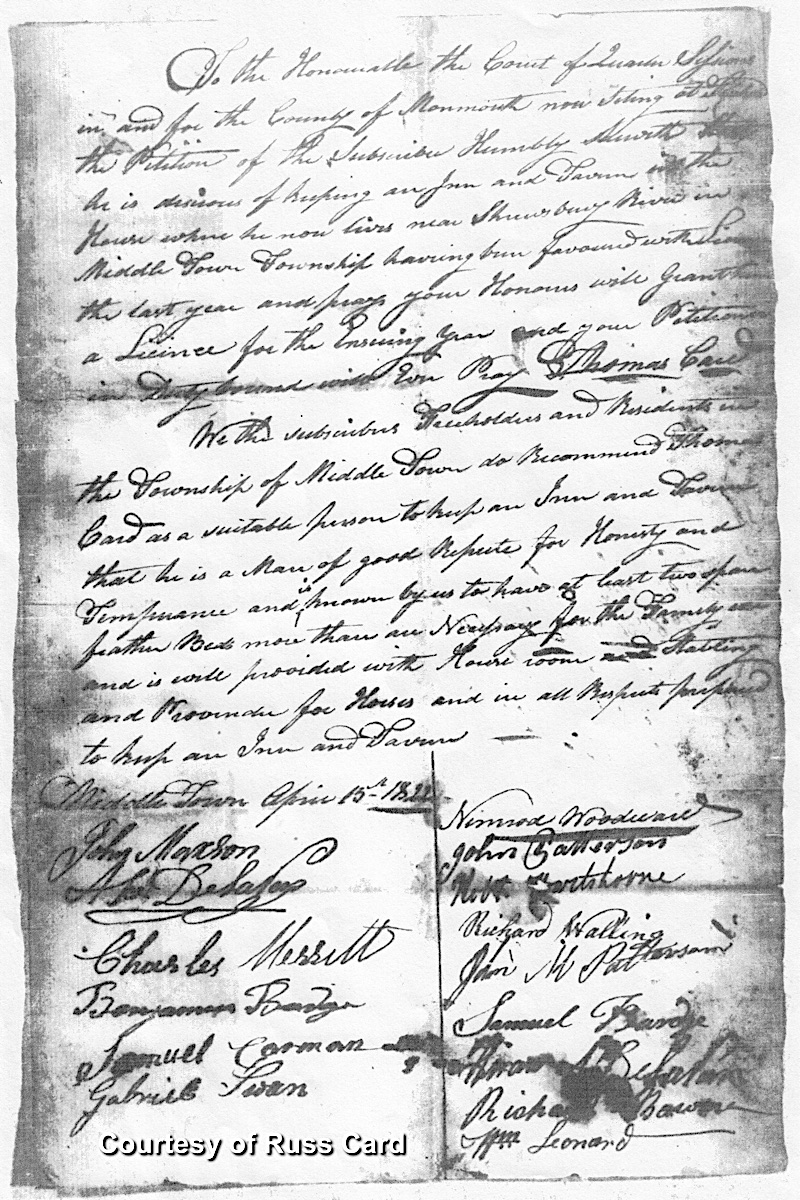 To the Honourable the Court of Quarter Sessions
in and for the County of Monmouth now siting at
the Petition of the Subscriber Humbly Sheweth that
he is disirous of keeping an Inn and Tavern in the
House where he now lives near Shrewsbury River in
Middle Town Township having bun favoured with
the last year and prays your Honours will Grant him
a Licince for the Ensuing Year and your Petitioner
in Duty bound will Ever Pray Thomas Card
We the subscribers Freeholders and Residents in
the Township of Middle Town do Recommend Thomas
Card as a suitable person to keep an Inn and Tavern
that he is a Man of good Repute for Honesty and
Temperance and is known by us to have at least two spare
feather Beds more than are Necessary for the Family use
and is well provided with House room and Stabling
and Provender for Horses and in all Respects prepared
to keep an Inn and Tavern
Middle Town April 15th 1822
John Maxson
Delafay
Charles Merritt
Benjamin Badge
Samuel Carman
Gabriel Swan
Nimrod Woodward
John Patterson
Robt Hartshorne
Richard Walling
Jam M Patterson
Samuel Bardge
Hiram
Richard Bowne
Wm Leonard
Courtesy of Russ Card